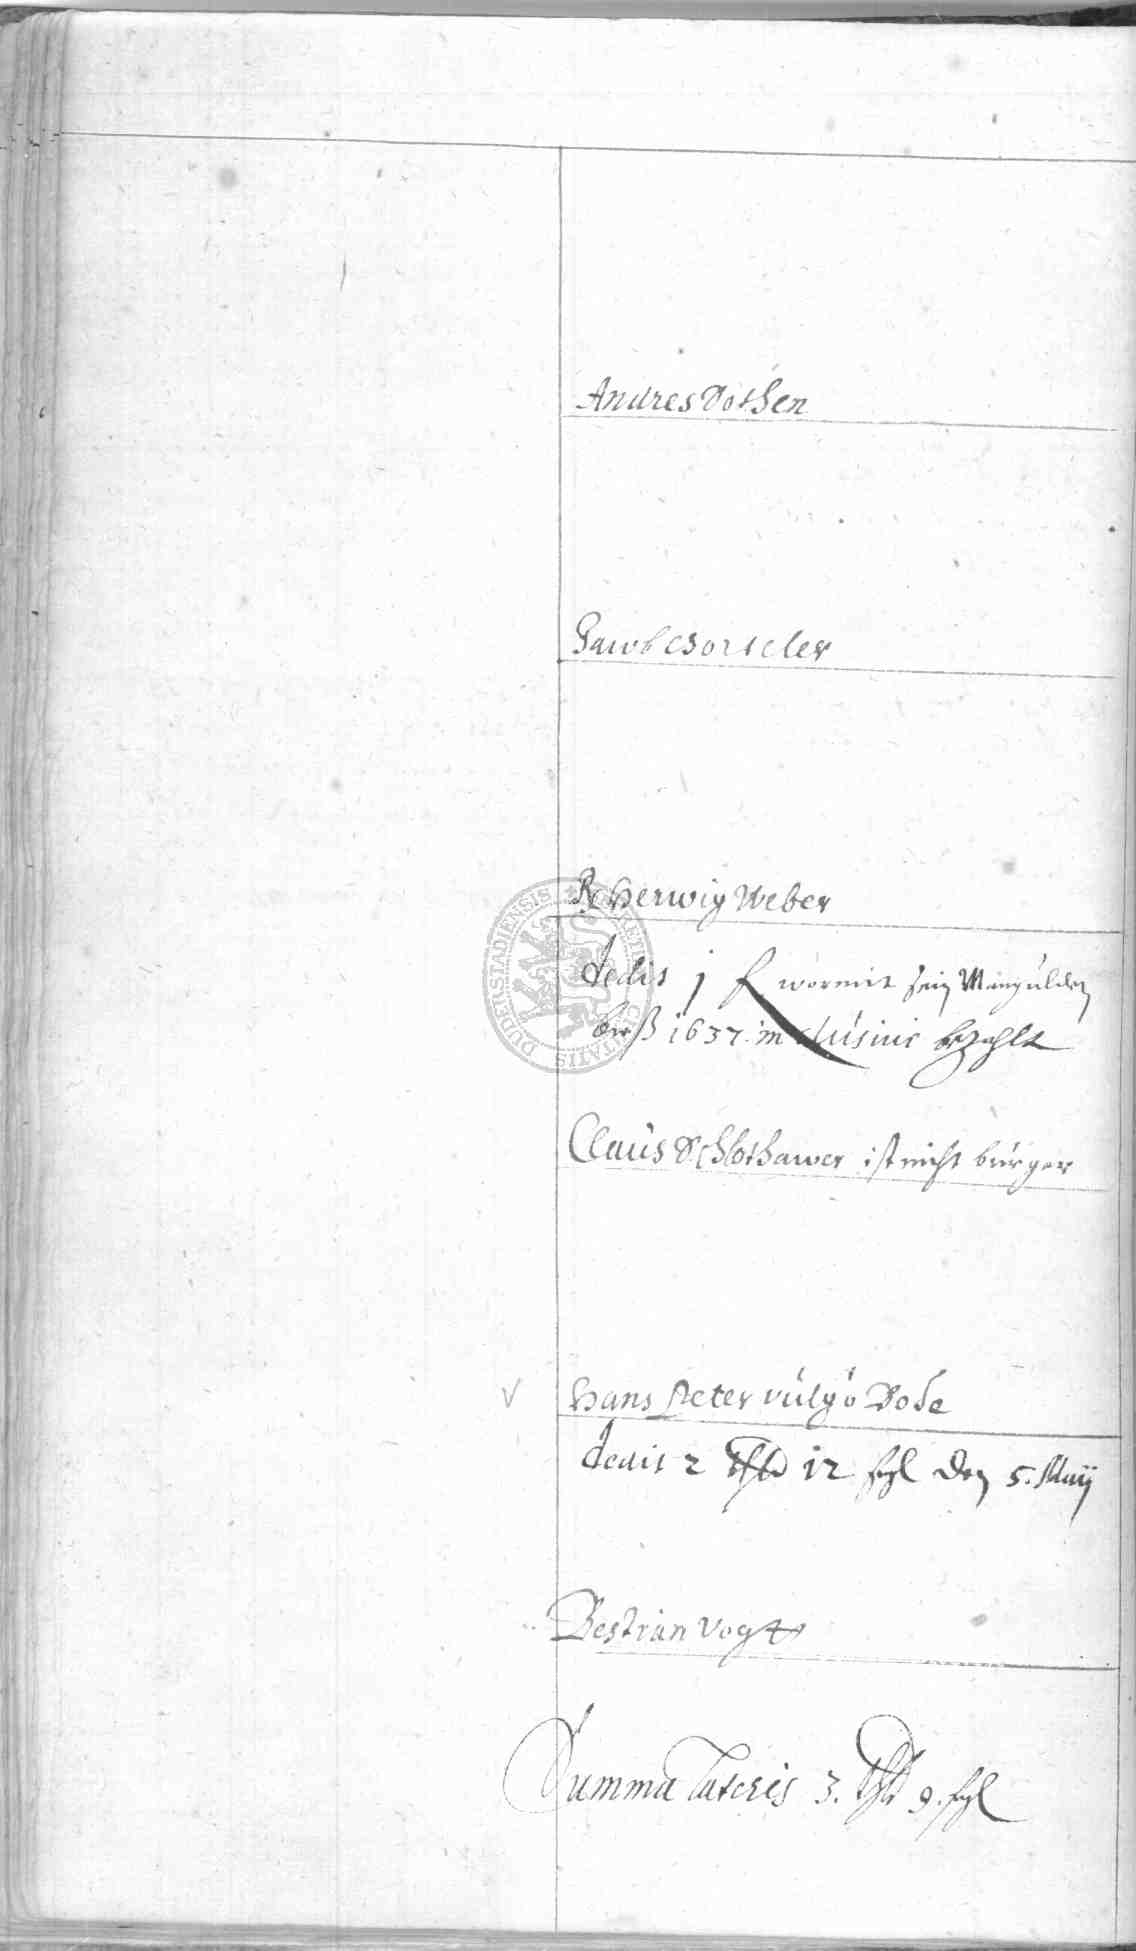 Andres Dothen
Jacob Borteler
Re Herwig Weber
dedit j f wormit sein Maingülden
biß 1637 inclusive bezahlt
Claus Schlothawer ist nicht bürger
V Hans Peter vulgo Bode
dedit 2 thlr 12 ßgl den 5. Maij
Bestian Vogt
Summa lateris 3. thlr 9. ßgl
DUDERSTADIENSIS CIVITATIS